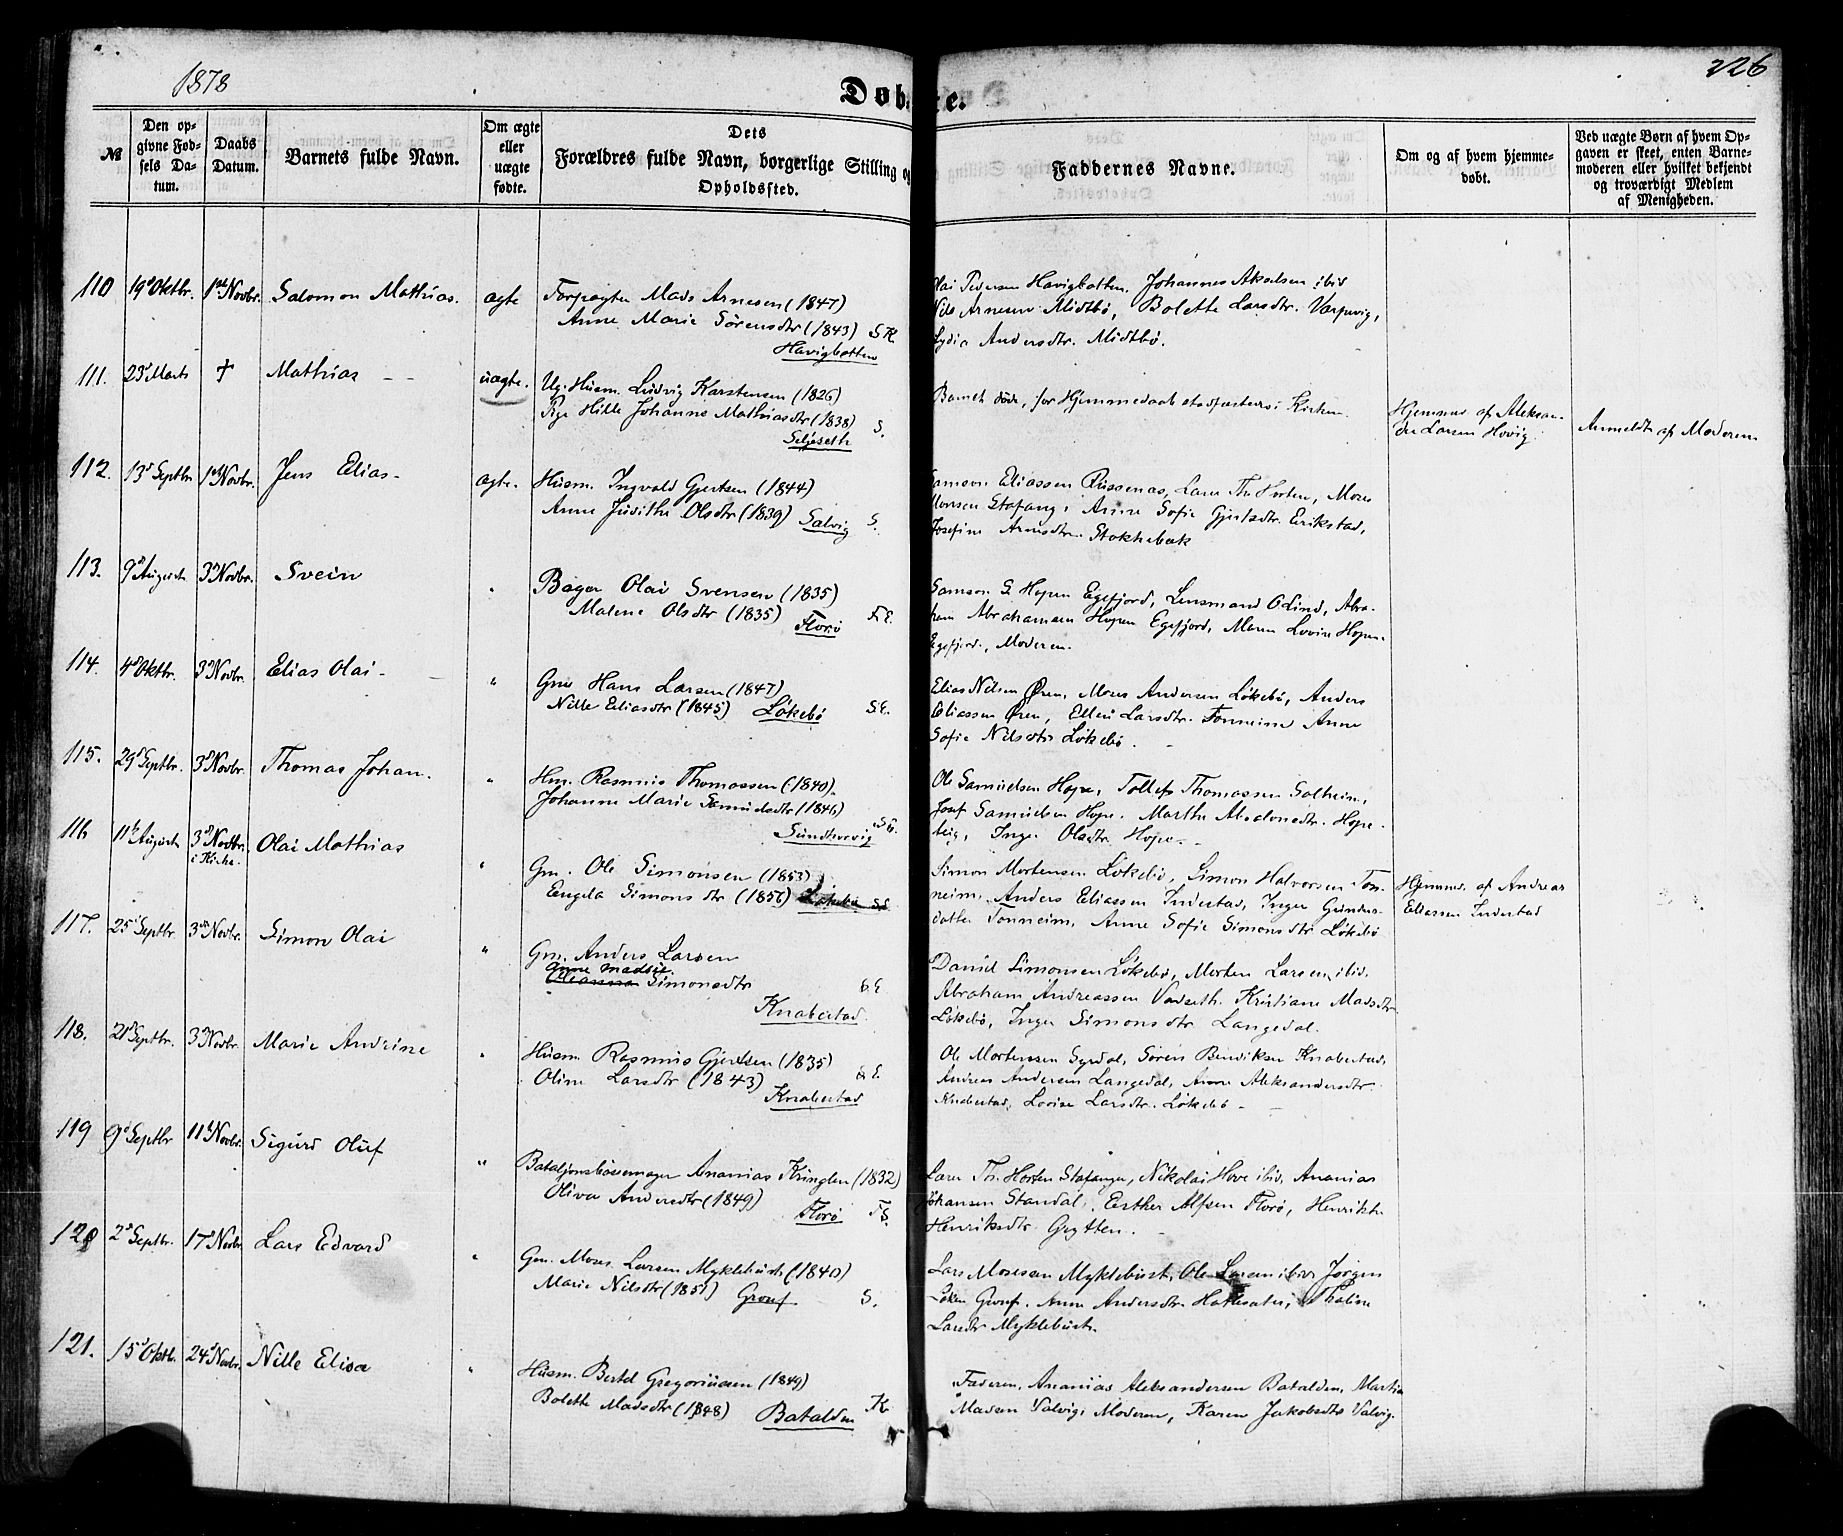 1878
Døbte.
226
№
Den opgivne Fødsels Datum.
Daabs Datum.
Barnets fulde Navn.
Om ægte eller uægte fødte.
Dets Forældres fulde Navn, borgerlige Stilling og Opholdssted.
Faddernes Navne.
Om og af hvem hjemmedøbt.
Ved uægte Børn af hvem Opgaven er skeet, enten Barnemoderen eller hvilket bekjendt og troværdigt Medlem af Menigheden.
110 19d Oktbr. 1ste Novbr. Salomon Mathias. ægte
Forpagter Mads Arnesen (1847)
Anne Marie Sörensdtr (1843) SK.
Havigbotten
Olai Pedersen Havigbotten, Johannes Akselsen ibid
Nils Arnesen Midtbö, Bolette Larsdtr. Varpevig,
Lydia Andersdtr. Midtbö.
111. 23d Marts † Mathias uægte.
Ug. Husm. Ludvig Karstensen (1826)
Pge Hille Johanne Mathiasdtr (1838) S.
Seljeseth
Barnet döde, för Hjemmedaab stadfæstedes i Kirken.
Hjemmed af Aleksan-
der Larsen Hovig.
Anmeldt af Moderen
112. 13d Septbr 1ste Novbr. Jens Elias ægte.
Husm. Ingvald Gjertsen (1844)
Anne Judithe Olsdtr (1839) Salvig S.
Samson Eliassen Russenæs, Lars Th. Horten, Moses
Monsen Stafang, Anne Sofie Gjertsdtr. Erikstad,
Josefine Arnesdtr. Stokkebæk
113. 9d August 3d Novbr. Svein "
Bager Olai Svensen (1835)
Malene Olsdtr (1835) F.E.
Florö
Samson S. Hopen Egefjord, Lensmand O Lind, Abra-
ham Abrahamsen Hopen Egefjord, Maren Lovise Hopen
Egefjord, Moderen.
114. 4d Oktbr. 3d Novbr. Elias Olai "
Gm Hans Larsen (1847)
Nille Eliasdtr (1845) Lökebö S.E.
Elias Nilsen Øren, Moses Andersen Lökebö, Anders
Eliassen Øren, Ellen Larsdtr. Tonheim Anne
Sofie Nilsdtr Lökebö.
115. 29d Septbr. 3d Novbr. Thomas Johan. "
Hm. Rasmus Thomassen (1840).
Johanne Marie Samuelsdtr (1846) S.E.
Sundsvovig
Ole Samuelsen Hope, Tollef Thomassen Solheim,
Josef Samuelsen Hope. Marthe Absalonsdtr. Hope-
Inger Olsdtr. Hope
116 11te August 3d Novbr. i Kirke. Olai Mathias "
Gm. Ole Simonsen (1853)
Engela Simonsdtr (1856) Lökebö S.E.
Simon Mortensen Lökebö, Simon Halvorsen Ton-
heim, Anders Eliassen Indestad, Inger Gunders-
datter Tonheim, Anne Sofie Simonsdtr Lökebö
Hjemmed. af Andreas
Eliassen Indestad
117. 25d Septbr. 3die Novbr. Simon Olai "
Gm. Anders Larsen
Anne Madsie
Simonsdtr
S.E.
Knabestad
Daniel Simonsen Lökebö, Morten Larsen ibid.
Abraham Andreassen Vadseth. Kristiane Madsdtr
Lökebö, Inger Simonsdtr Langedal.
118. 21d Septbr. 3d Novbr. Marie Andrine "
Husm. Rasmus Gjertsen (1835)
Oline Larsdtr (1843) S.E.
Knabestad
Ole Mortensen Syrdal, Sören Bendiksen Knabestad,
Andreas Andersen Langedal, Anne Aleksandersdtr.
Knabestad, Lovise Larsdtr. Lökebö
119 9d Septbr 11te Novbr. Sigurd Oluf "
Bataljonsbössemager Ananias Kringlen (1832)
Oliva Andersdtr (1849)
Florö F.E.
Lars Th. Horten Stafanger, Nikolai Hove ibid, Ananias
Johansen Standal. Esther Alfsen Florö, Henrikke
Henriksdtr. Grytten.
120 2d Septbr. 17d Novbr Lars Edvard "
Gm. Moses Larsen Myklebust (1840)
Marie Nilsdtr (1851) Grouf S.
Lars Mosesen Myklebust, Ole Larsen ibid, Jørgen
Löken Grouf. Anne Andersdtr. Hatlesater, Thaline
Larsdtr Myklebust.
121. 15d Oktb. 24d Novbr. Nille Elisa "
Husm. Bertel Gregoriussen (1849)
Bolette Madsdtr (1848) Batalden K.
Faderen, Ananias Aleksandersen Batalden, Martin
Madsen Valvig, Moderen, Karen Jakobsdtr Valvig.